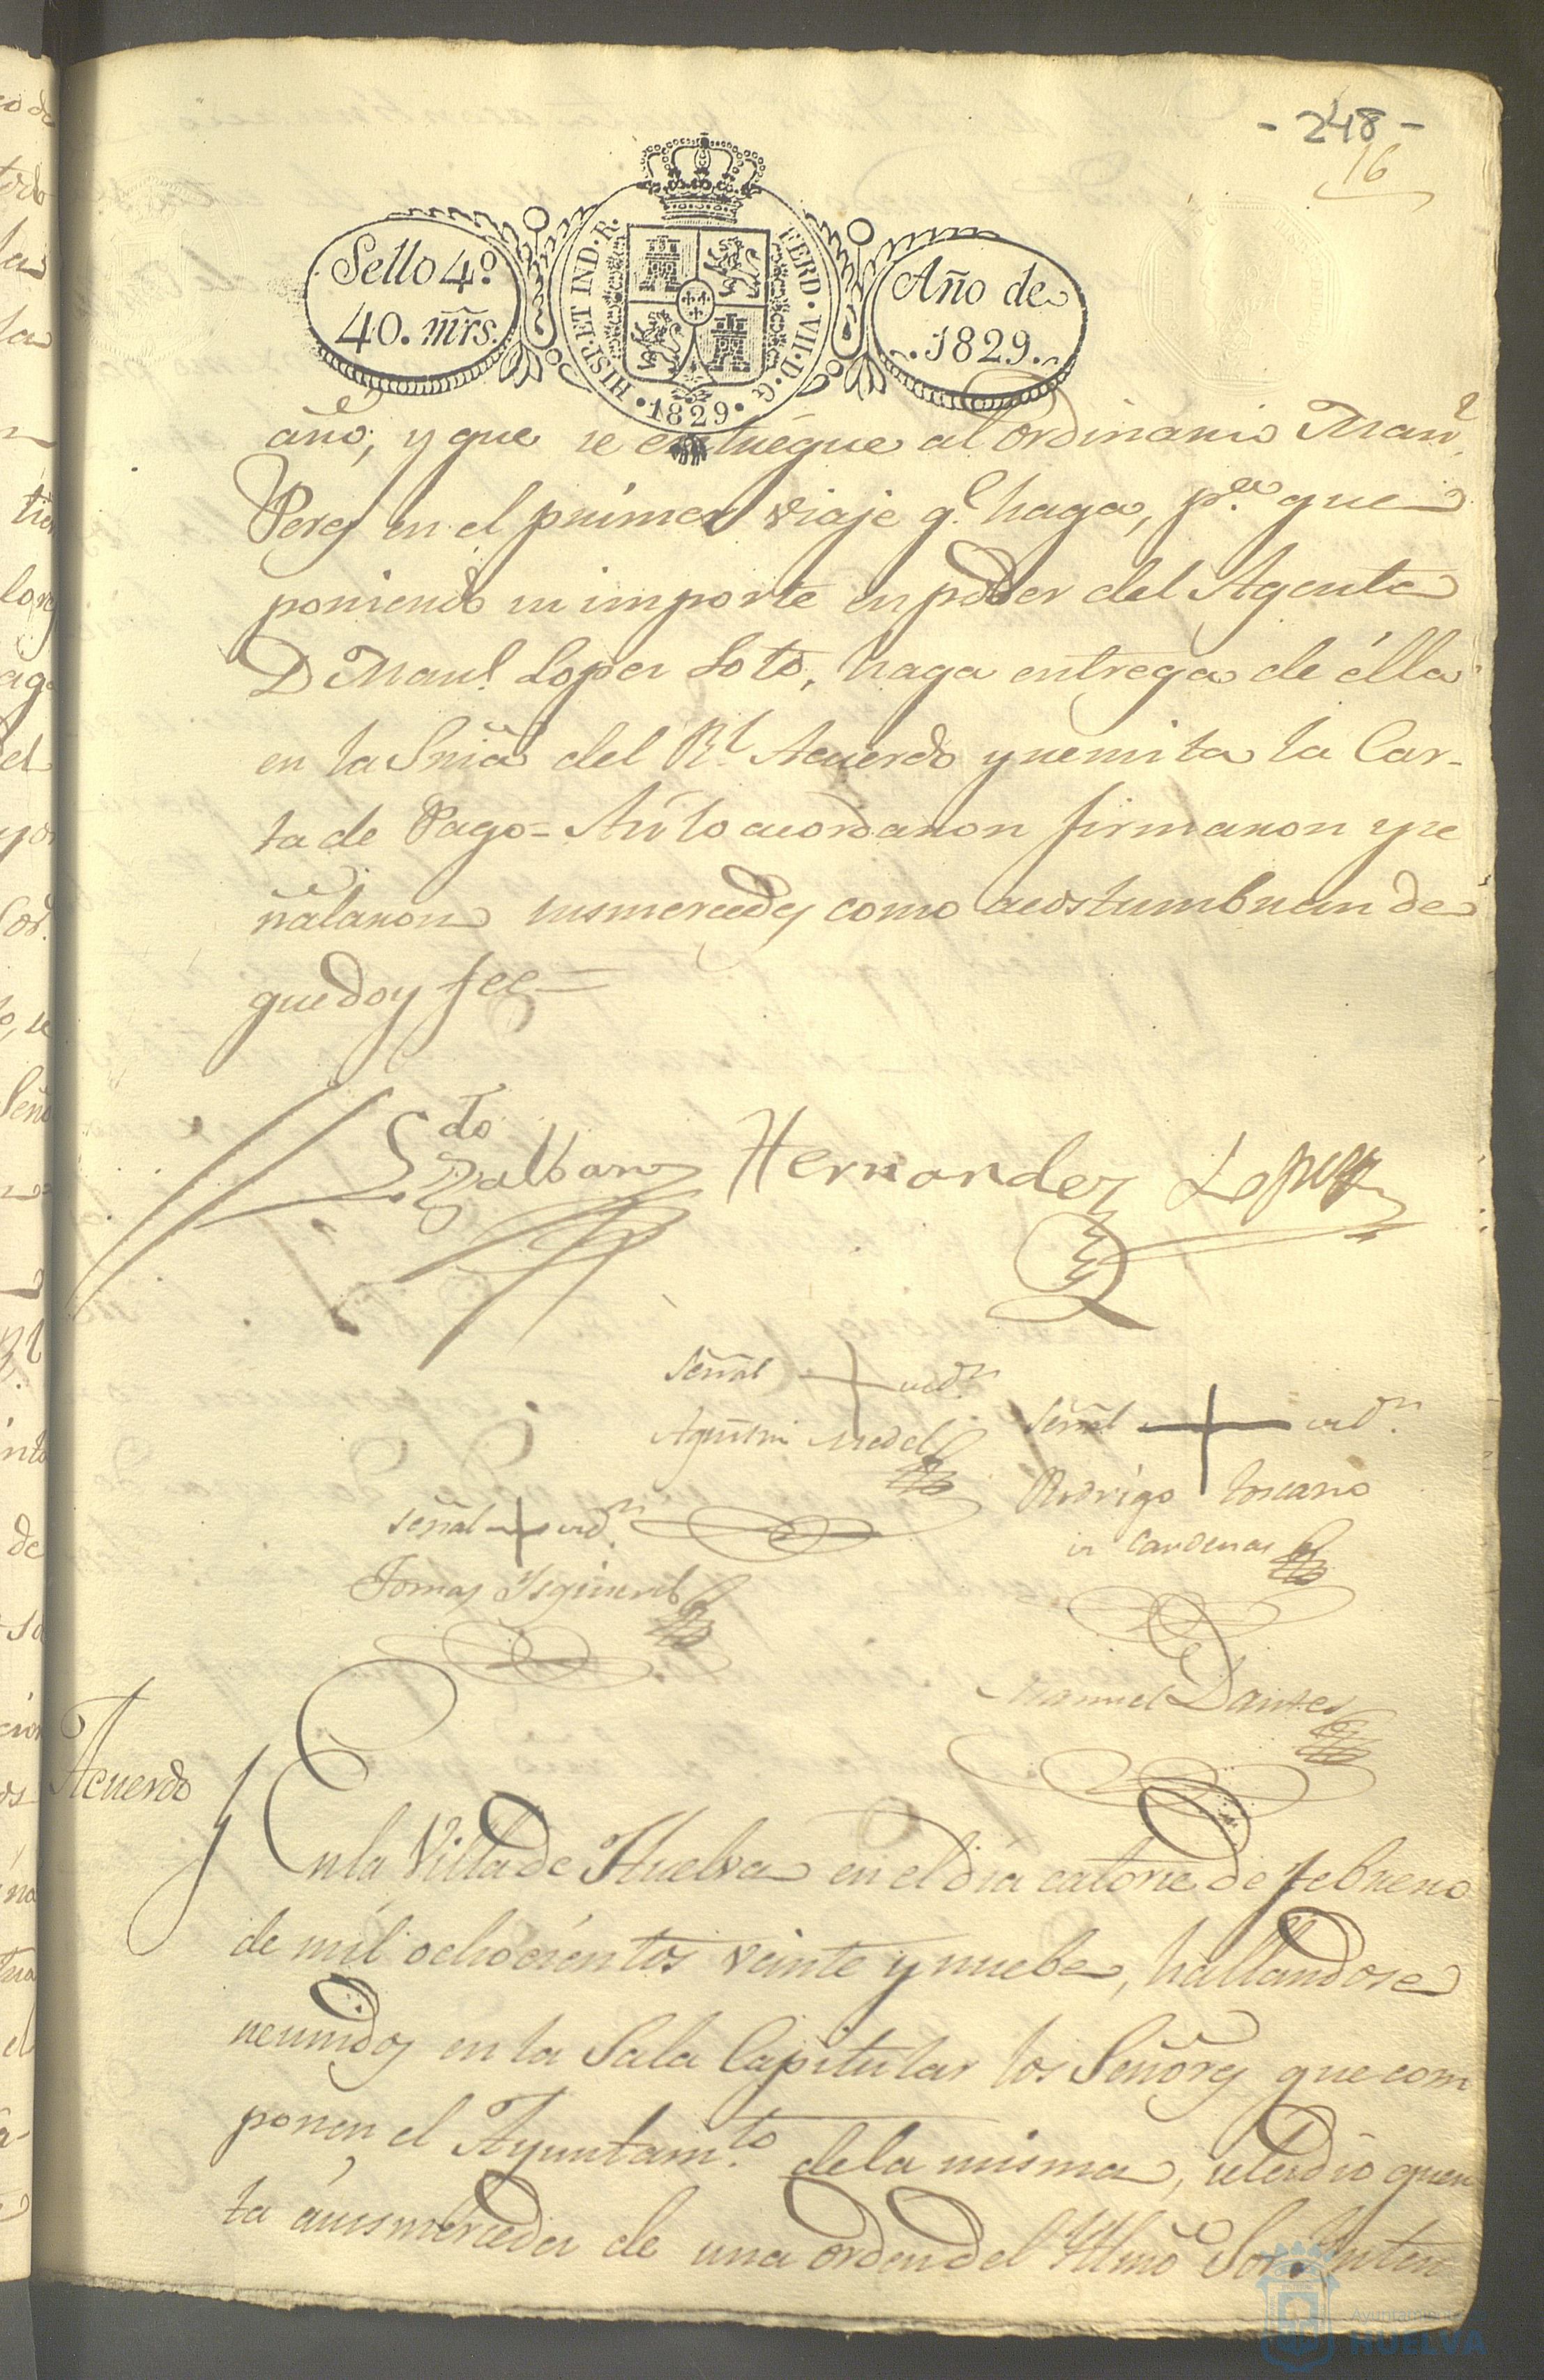 - 248 -
16
Sello 4º
40. mrs.
HISP. ET IND. R.
FERD. VII. D. G.
1829
Año de
1829.
año; y que se entregue al Ordinario Manl.
Perez en el primer viaje q.e haga, p.a que
poniendo su importe en poder del Agente
D Manl. Lopez Soto, haga entrega de élla
en la Sriâ del Rl. Acuerdo y remita la Car-
ta de Pago = Así lo acordaron firmaron y se
ñalaron susmercedes como acostumbran de
que doy fee =
Hernandez Lopez
Señal + de
Agustin Medel
Señal + de
Rodrigo Toscano
Cardenas
Señal + de
Tomas Ysquierdo
Manuel Dantes
Acuerdo
En la Villa de Huelva en el dia catorce de febrero
de mil ochocientos veinte y nuebe, hallandose
reunidos en la Sala Capitular los Señores que com
ponen el Ayuntam.to de la misma, se le dio quen
ta ásusmercedes de una orden del Illmô Sor. Inten
Ayuntamiento de
HUELVA